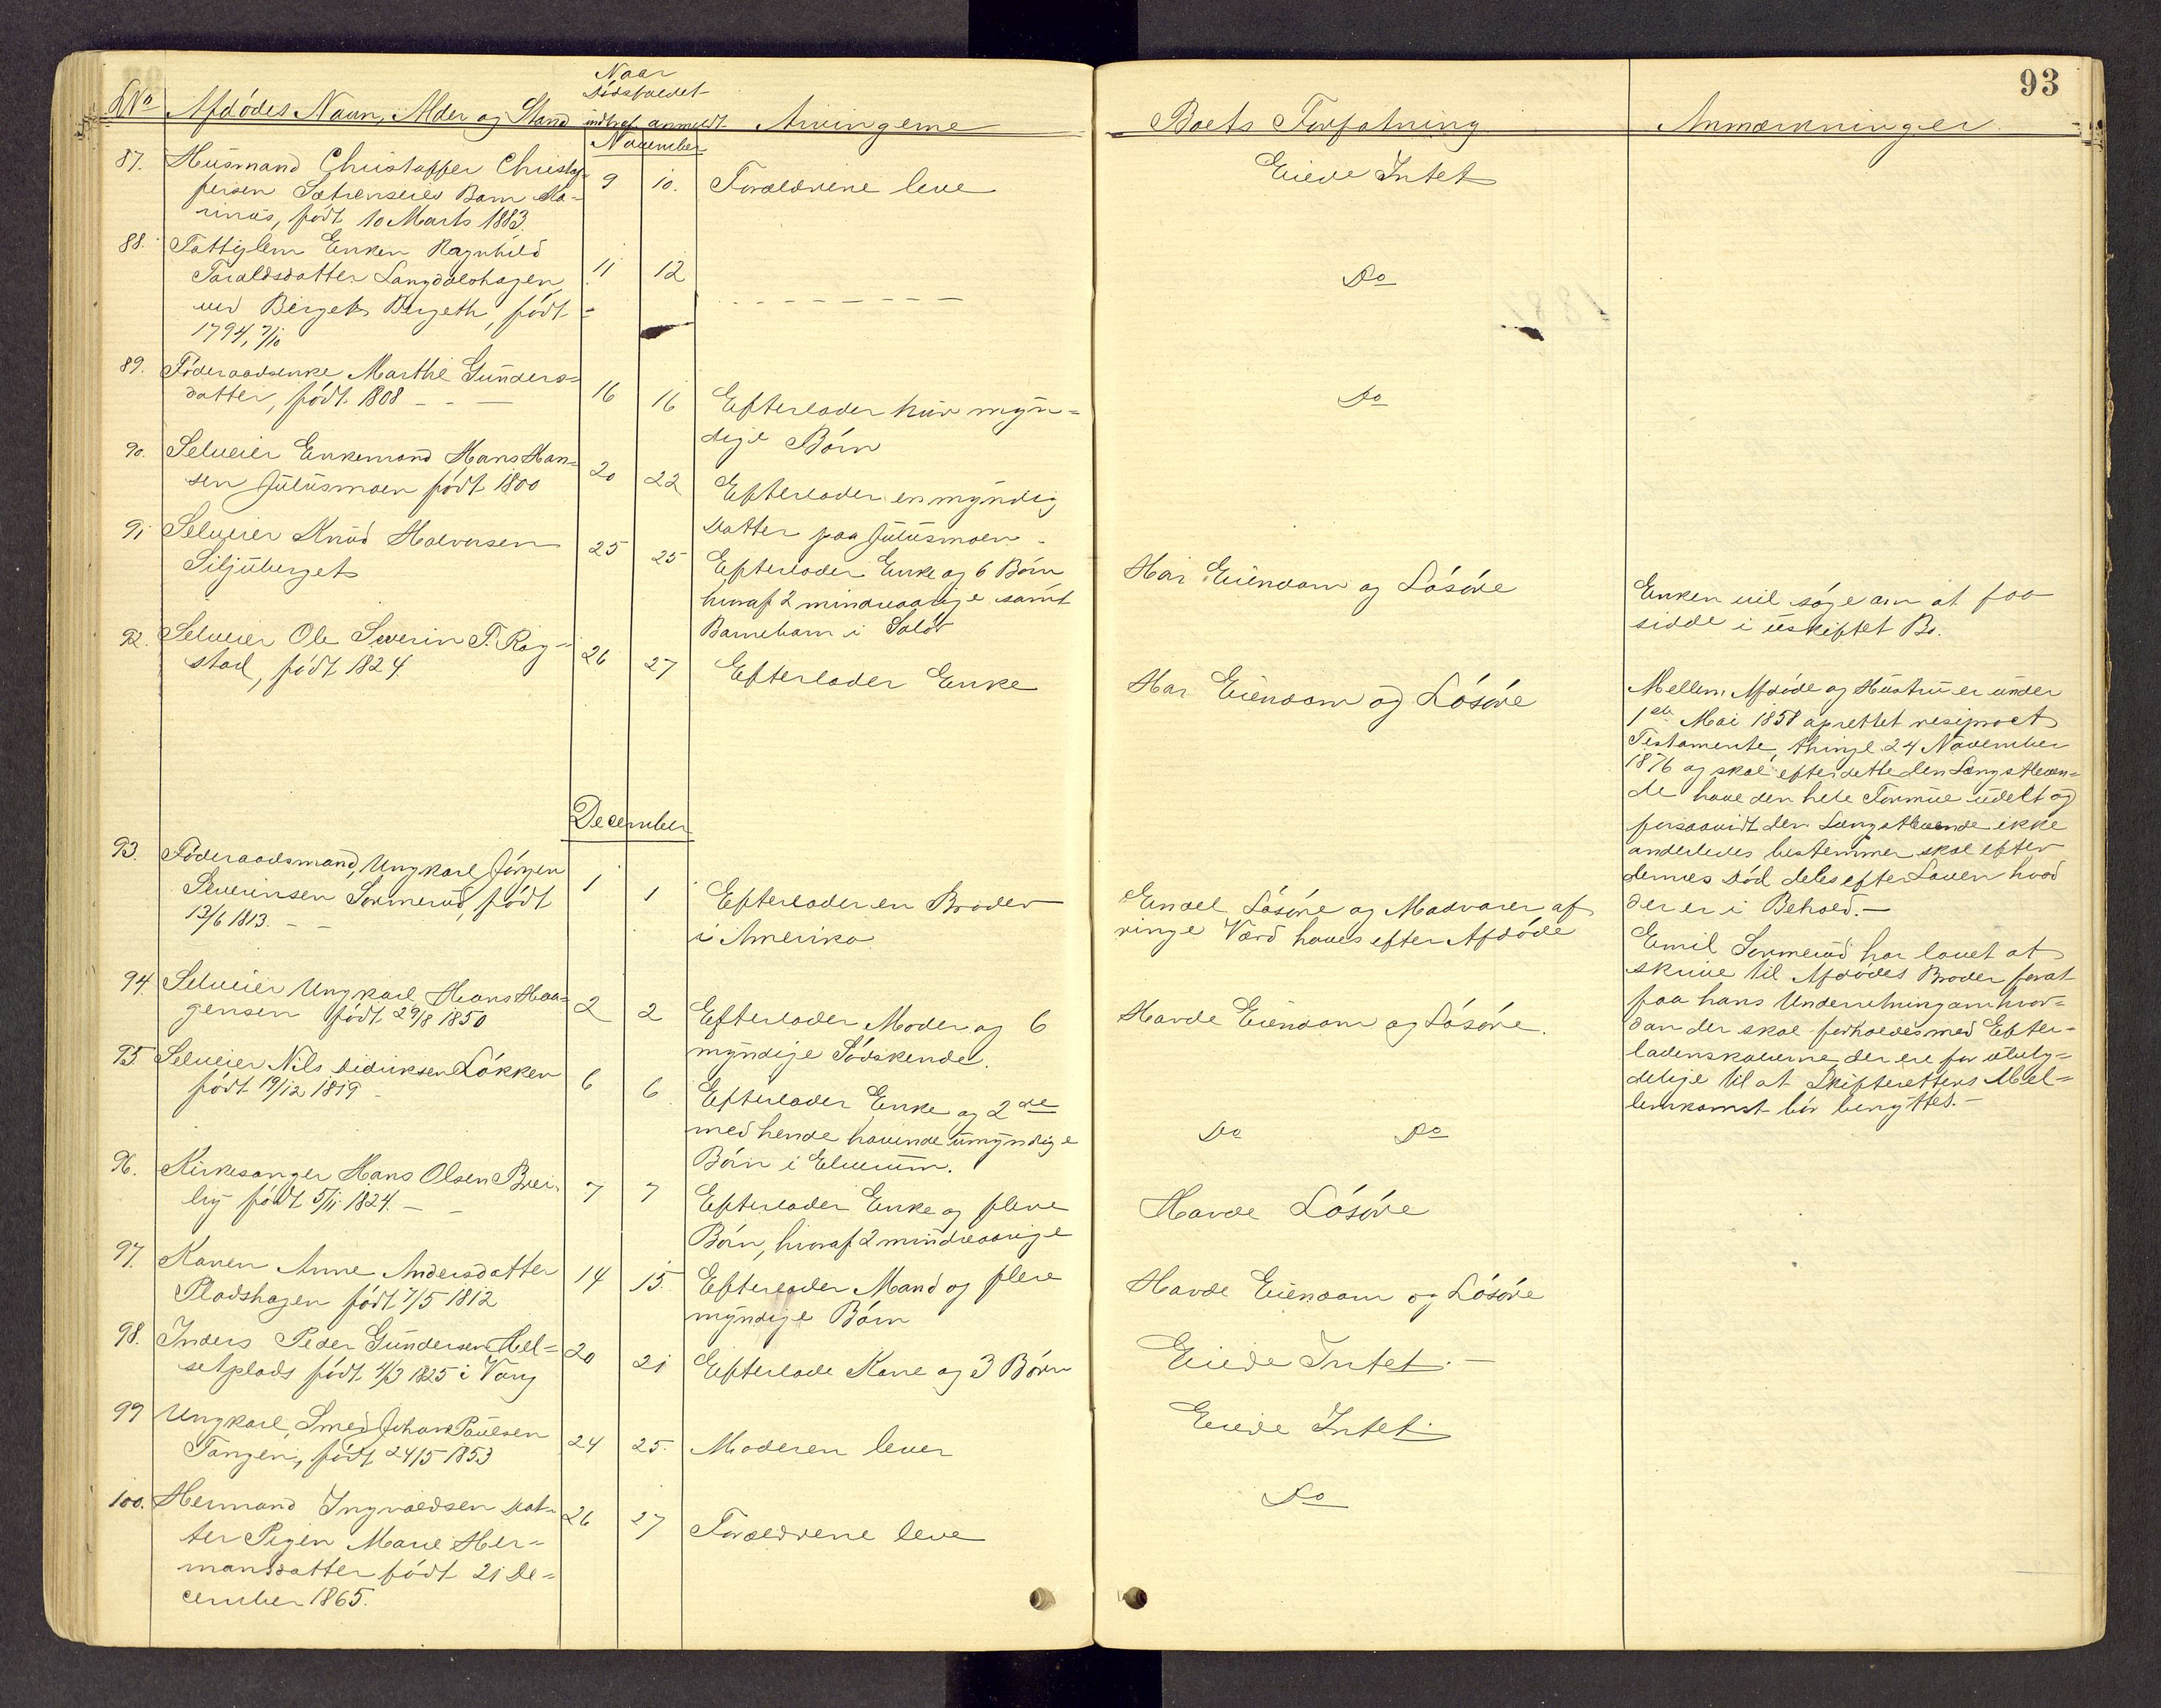 93
Naar
Dødsfaldet
LNo Afdødes Navn, Alder og Stand indtraf anmeldt Arvingerne Boets Forfatning Anmærkninger
November
87. Husmand Christoffer Christof-
fersen Sætrenseies Barn Ma-
rinus, født 10 Marts 1883.
9 10. Forældrene leve
Eiede Intet
88. Fattiglem Enken Ragnhild
Taraldsdatter Langdalshagen,
ved Berget Bergeth, født
1794, 7/10
11 12 - - - - - - - -
Do
89. Føderaadsenke Marthe Gunders-
datter, født 1808 - - -
16 16 Efterlader kun myn-
dige Børn
Do
90. Selveier Enkemand Hans Han-
sen Julusmoen født 1800
20 22 Efterlader en myndig
Datter paa Julusmoen -
91 Selveier Knud Halvorsen
Siljuberget
25 25 Efterlader Enke og 6 Børn
hvoraf 2 mindreaarige samt
Barnebarn i Solør
Har Eiendom og Løsøre
Enken vil søge om at faa
sidde i uskiftet Bo.
92. Selveier Ole Severin P. Rog-
stad, født 1824.
26 27 Efterlader Enke
Har Eiendom og Løsøre
Mellem Afdøde og Hustru er under
1ste Mai 1858 oprettet resiproct
Testamente, thingl. 24 November
1876 og skal efter dette den Længstleven-
de have den hele Formue udelt og
forsaavidt den Længstlevende ikke
anderledes bestemmer skal efter
dennes Død deles efter Loven hvad
der er i Behold. -
December
93. Føderaadsmand, Ungkarl Jørgen
Severinsen Sormerud, født
13/6 1813. - -
1 1 Efterlader en Broder
i Amerika
Eindel Løsøre og Madvarer af
ringe Værd haves efter Afdøde
Emil Sormerud har lovet at
skrive til Afdødes Broder forat
faa hans Underretning om hvor-
dan der skal forholdes med Efter-
ladenskaberne, der ere for ubety-
delige til at Skifterettens Mel-
lemkomst bør benyttes. -
94. Selveier Ungkarl Hans Haa-
gensen født 29/8 1850
2 2 Efterlader Moder og 6
myndige Sødskende.
Havde Eiendom og Løsøre.
95. Selveier Nils Didriksen Løkken
født 19/12 1819 -
6 6. Efterlader Enke og 2de
med hende havende umyndige
Børn i Elverum.
Do Do
96. Kirkesanger Hans Olsen Brei-
by født 5/11 1824. - -
7 7 Efterlader Enke og flere
Børn, hvoraf 2 mindreaarige
Havde Løsøre
97. Konen Anne Andersdatter
Pladshagen født 7/5 1812
14 15. Efterlader Mand og flere
myndige Børn
Havde Eiendom og Løsøre
98. Inders Peder Gundersen Hel-
setplads født 4/3 1825 i Vang
20 21 Efterlade Kone og 3 Børn
Eiede Intet. -
99 Ungkarl, Smed Johan Paulsen
Tangen, født 24/5 1853
24 25. Moderen lever
Eiede Intet.
100. Hermand Ingvaldsen Dat-
ter Pigen Marie Her-
mansdatter født 21 De-
cember 1865.
26 27 Forældrene leve
Do